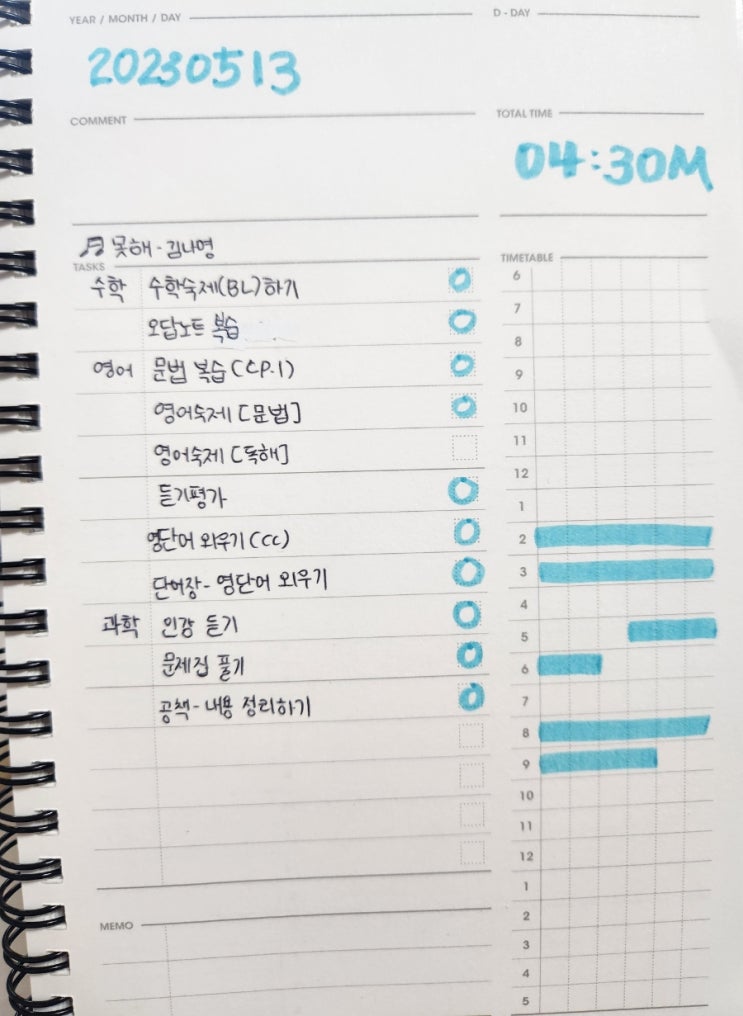 YEAR / MONTH / DAY
D - DAY
20230513
COMMENT
TOTAL TIME
04:30M
♬ 못해 - 김나영
TASKS
TIMETABLE
수학 수학숙제(BL)하기
오답노트 복습
영어 문법 복습 (CP.1)
영어숙제 [문법]
영어숙제 [독해]
듣기평가
영단어 외우기 (CC)
단어장 - 영단어 외우기
과학 인강 듣기
문제집 풀기
공책 - 내용 정리하기
6
7
8
9
10
11
12
1
2
3
4
5
6
7
8
9
10
11
12
1
2
3
4
5
MEMO